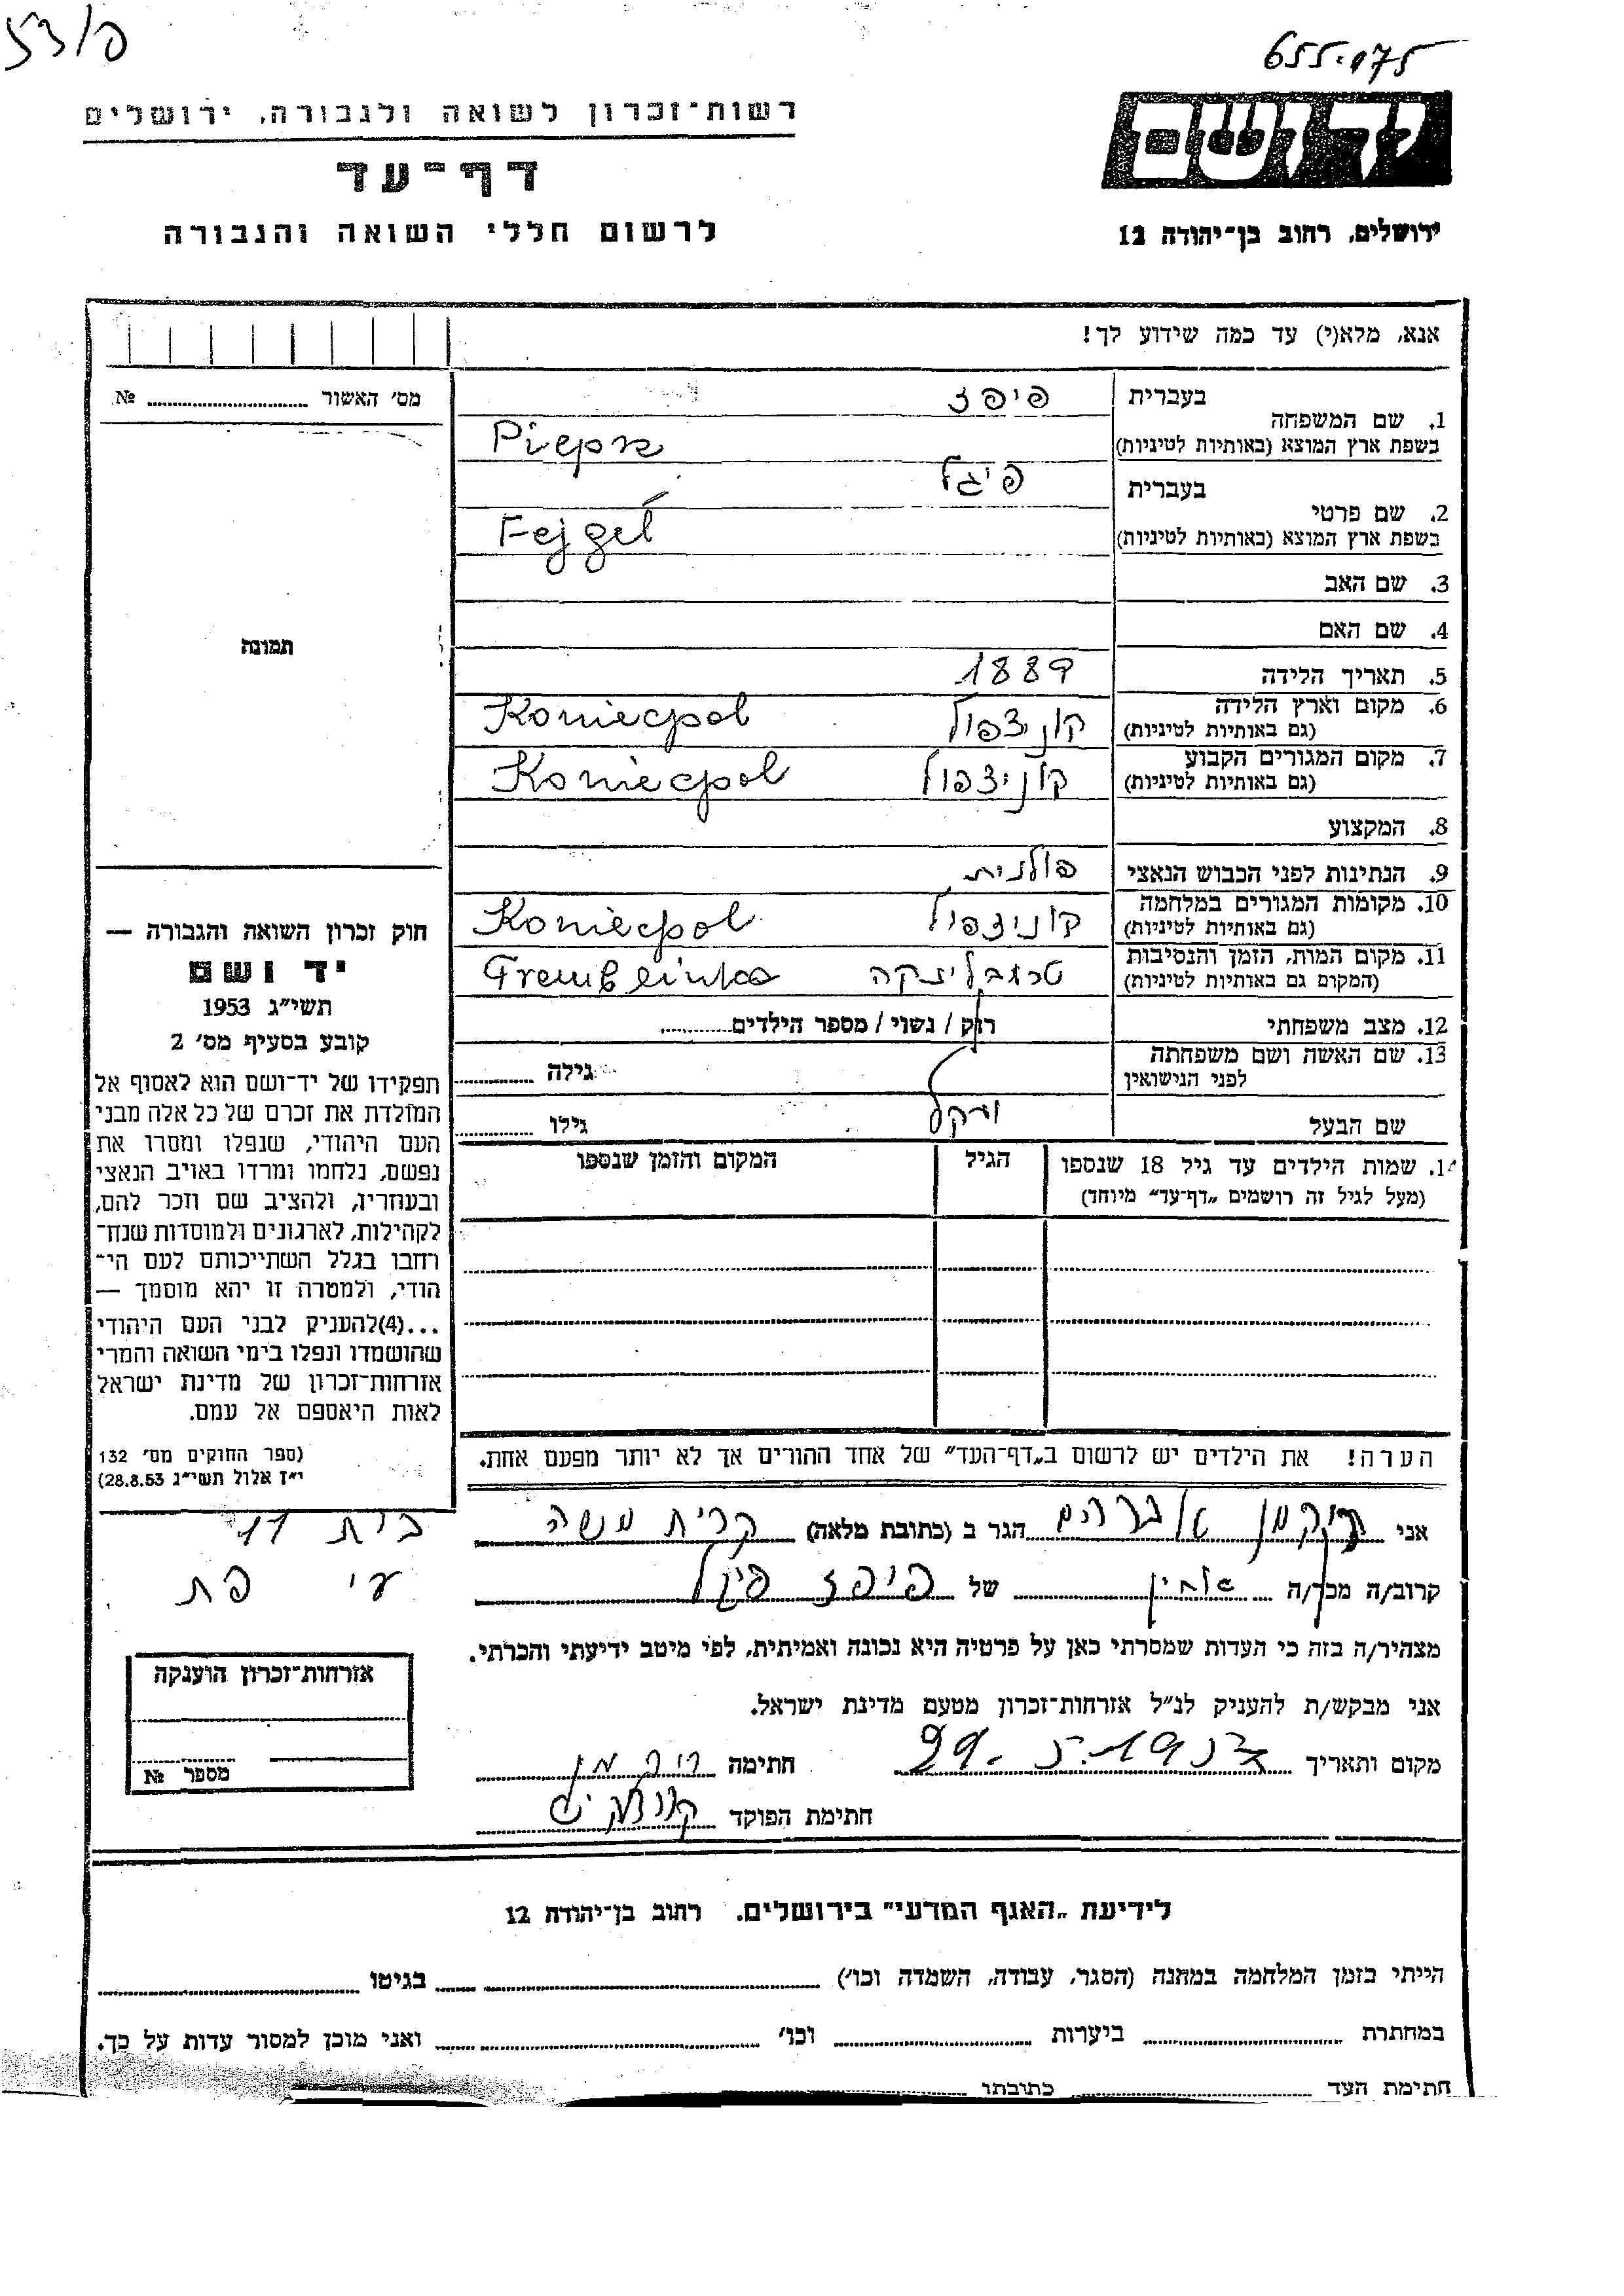 פ/53
655.175
רשות-זכרון לשואה ולגבורה, ירושלים
דף-עד
לרשום חללי השואה והגבורה
יד ושם
ירושלים, רחוב בן-יהודה 12
אנא, מלא(י) עד כמה שידוע לך!
מס' האשור ........ №
תמונה
1. שם המשפחה
בעברית פיפז
בשפת ארץ המוצא (באותיות לטיניות) Pieprz
2. שם פרטי
בעברית פיגל
בשפת ארץ המוצא (באותיות לטיניות) Fejgel
3. שם האב
4. שם האם
5. תאריך הלידה 1889
6. מקום וארץ הלידה
(גם באותיות לטיניות) קוניצפול Koniecpol
7. מקום המגורים הקבוע
(גם באותיות לטיניות) קוניצפול Koniecpol
8. המקצוע
9. הנתינות לפני הכבוש הנאצי פולנית
10. מקומות המגורים במלחמה
(גם באותיות לטיניות) קוניצפול Koniecpol
11. מקום המות, הזמן והנסיבות
(המקום גם באותיות לטיניות) טרבלינקה
12. מצב משפחתי רוק / נשוי / מספר הילדים........
13. שם האשה ושם משפחתה
לפני הנישואין גילה ........
שם הבעל גילו ........
14. שמות הילדים עד גיל 18 שנספו
(מעל לגיל זה רושמים „דף-עד״ מיוחד)
הגיל
המקום והזמן שנספו
חוק זכרון השואה והגבורה —
יד ושם
תשי״ג 1953
קובע בסעיף מס' 2
תפקידו של יד-ושם הוא לאסוף אל
המולדת את זכרם של כל אלה מבני
העם היהודי, שנפלו ומסרו את
נפשם, נלחמו ומרדו באויב הנאצי
ובעוזריו, ולהציב שם וזכר להם,
לקהילות, לארגונים ולמוסדות שנח-
רחבו בגלל השתייכותם לעם הי-
הודי, ולמטרה זו יהא מוסמך —
...(4)להעניק לבני העם היהודי
שהושמדו ונפלו בימי השואה והמרי
אזרחות-זכרון של מדינת ישראל
לאות היאספם אל עמם.
(ספר החוקים מס' 132
י״ז אלול תשי״ג 28.8.53)
הערה! את הילדים יש לרשום ב„דף-העד״ של אחד ההורים אך לא יותר מפעם אחת.
אני אברהם הגר ב (כתובת מלאה) קרית משה
בית 11
קרוב/ה מכר/ה אחין של פיפז פיגל
מצהיר/ה בזה כי העדות שמסרתי כאן על פרטיה היא נכונה ואמיתית, לפי מיטב ידיעתי והכרתי.
אני מבקש/ת להעניק לנ״ל אזרחות-זכרון מטעם מדינת ישראל.
מקום ותאריך חתימה
חתימת הפוקד
אזרחות-זכרון הוענקה
מספר №
לידיעת „האגף המדעי״ בירושלים. רחוב בן-יהודה 12
הייתי בזמן המלחמה במחנה (הסגר, עבודה, השמדה וכו') ........ בגיטו ........
במחתרת ........ ביערות ........ וכו' ........ ואני מוכן למסור עדות על כך.
חתימת העד ........ כתובתו ........